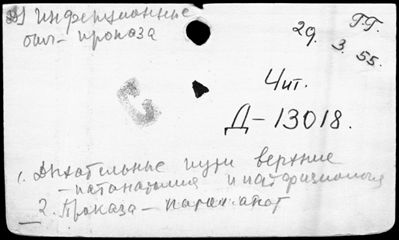 инфекционные
бол- проказа
Г.Г.
29. 3. 55.
Чит.
Д-13018.
1. Дыхательные пути верхние
- патанатомия и патфизиология
2. Проказа -